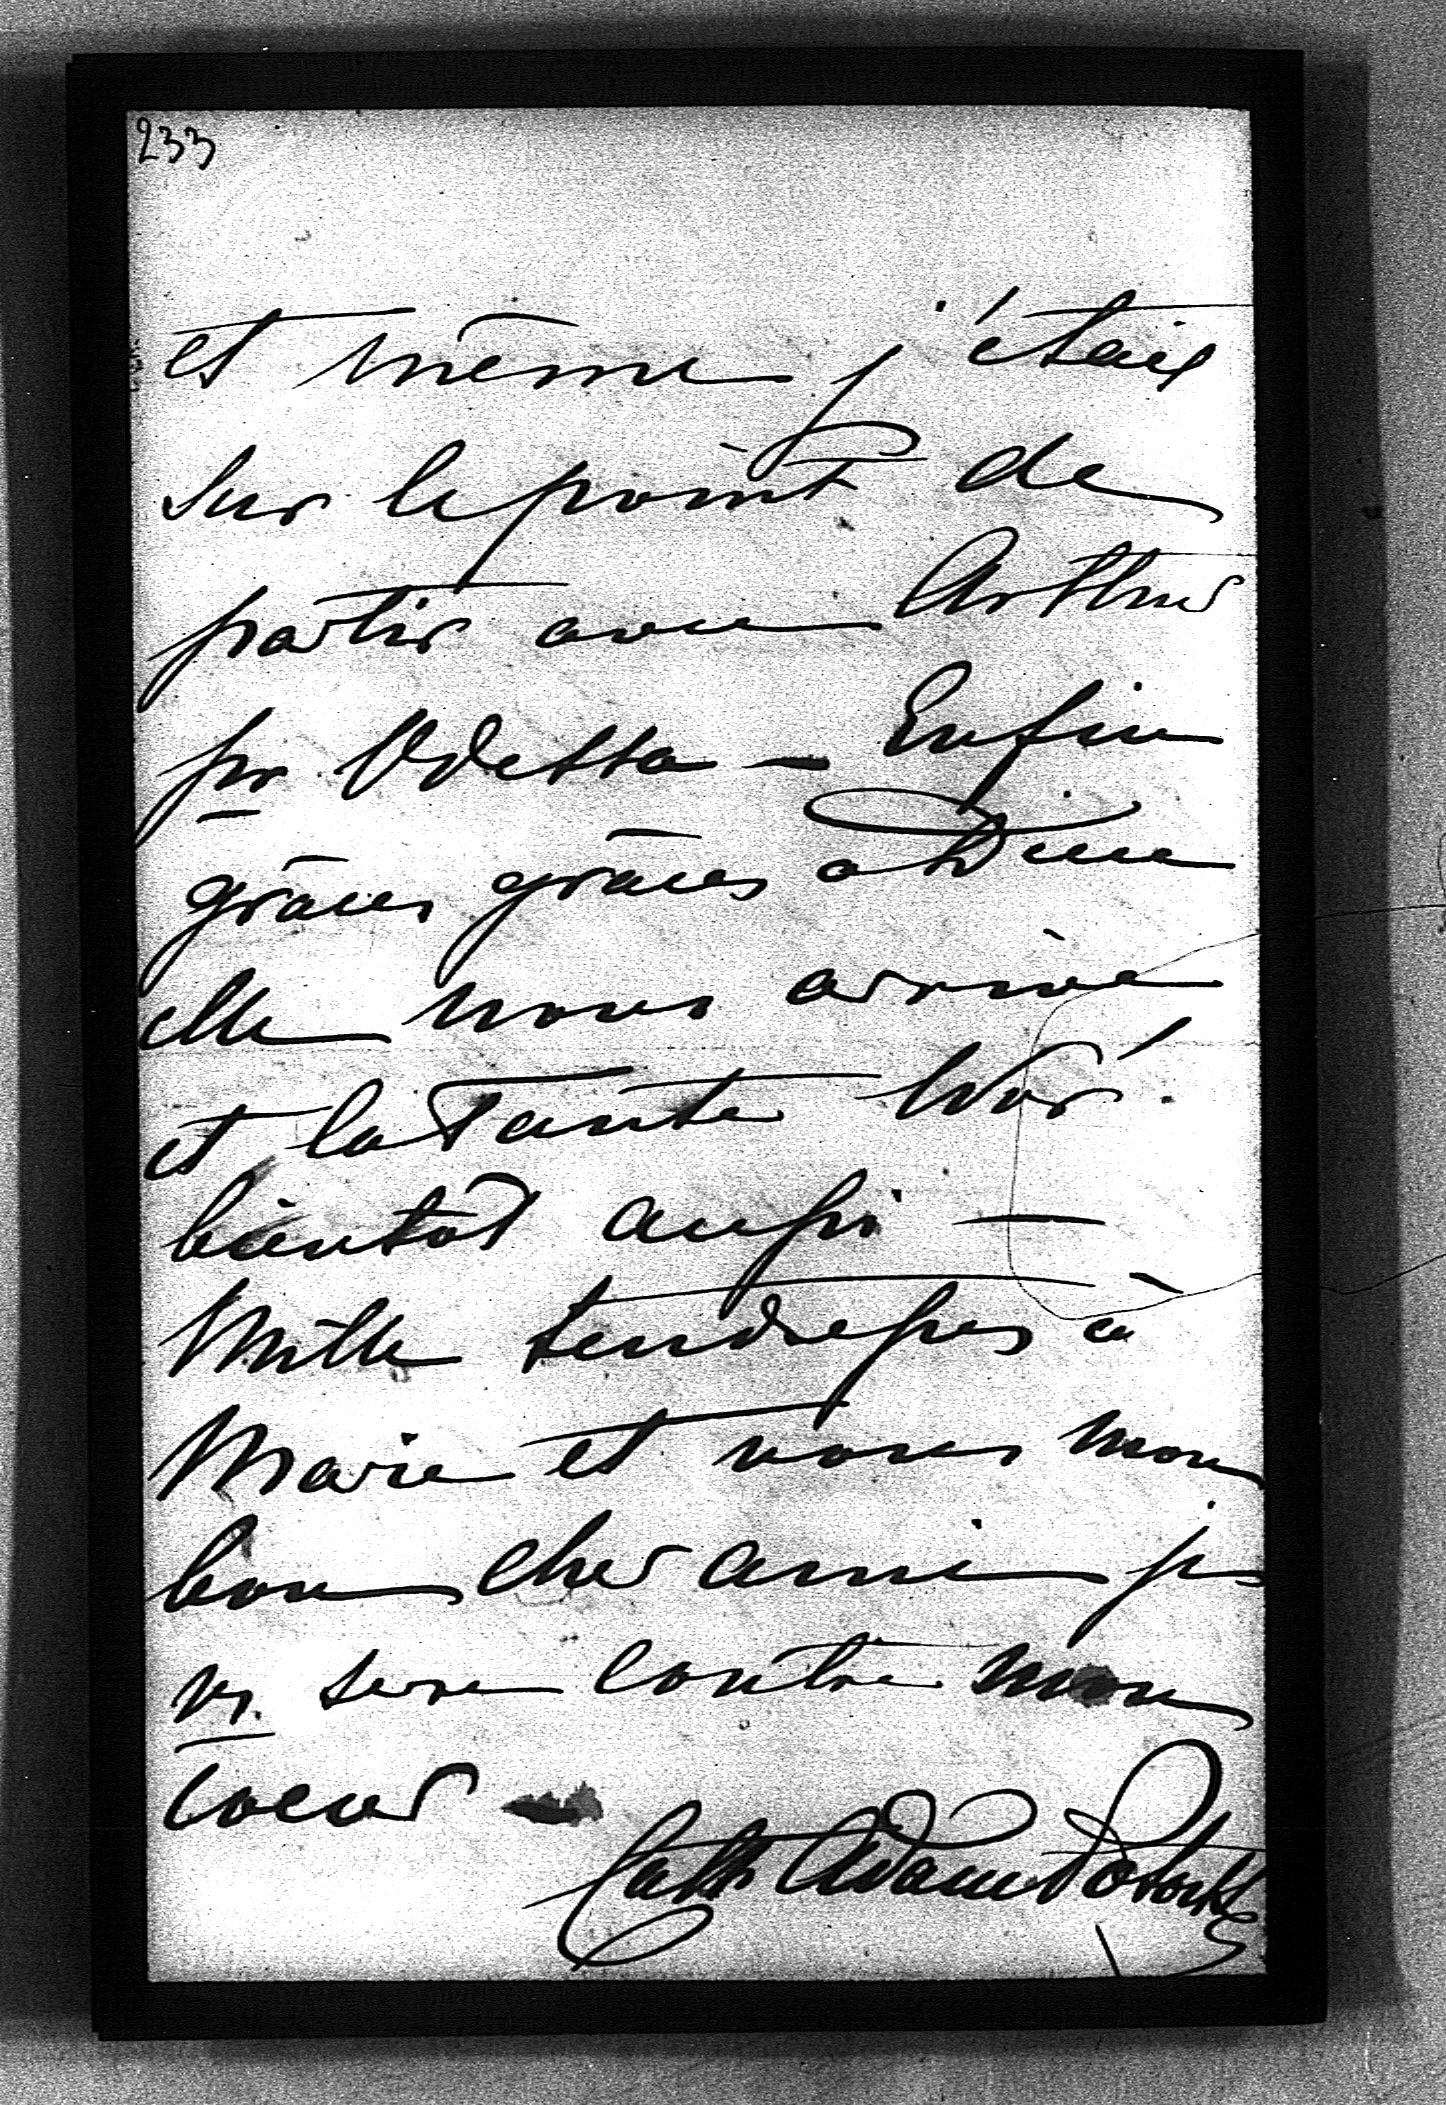 233
et même j'étais
sur le point de
partir avec Arthur
pr Odetta — Enfin
grâces grâces à Dieu
elle nous arrive
et la Tante Wor.
bientôt aussi —
Mille tendresses à
Marie et vous mon
bon cher ami je
vs. serre contre mon
coeur —
Cath Adam Potocki